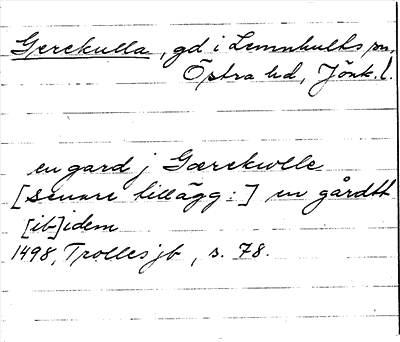 Gerekulla, gd i Lemnhults sn,
Östra hd, Jönk. l.
en gard j Gærekwlle
[senare tillägg:] en gårdtt
[ib]idem
1498, Trolles jb, s. 78.